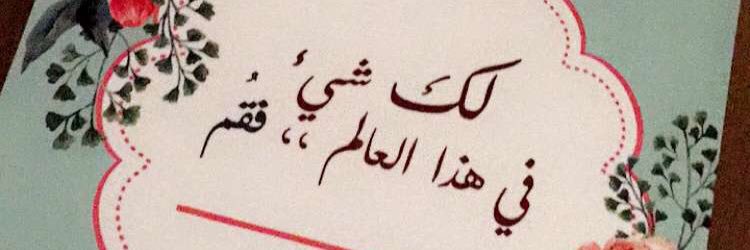 لكَ شيئ
في هذا العالم ،، فقُم